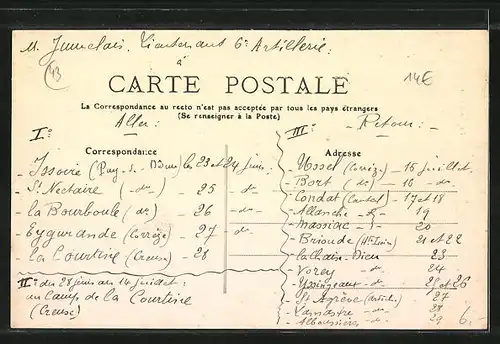 M. Jumelais. Lieutenant 6e Artillerie:
à
43
14€
CARTE POSTALE
La Correspondance au recto n'est pas acceptée par tous les pays étrangers
(Se renseigner à la Poste)
Iº:
Aller:
Correspondance
- Issoire (Puy-d-Dôme) les 23 et 24 juin:
- St Nectaire -do- 25 -do-
- la Bourboule (do) - 26 -do-
- Eygurande (Corrèze) - 27 -do-
- la Courtine (Creuse) - 28
IIº: du 28 juin au 14 juillet:
au Camp de la Courtine
(Creuse)
IIIº:
- Retour: -
Adresse
- Ussel (Corrèze) - 15 juillet.
- Bort (do) - 16 -do-
- Condat (Cantal) 17 et 18
- Allanche - do - 19
- Massiac - do - 20
- Brioude (Hte Loire) 21 et 22
- la Chaise-Dieu 23
- Vorey - do 24
- Yssingeaux - do - 25 et 26
- St Agrève (Ardèche) - 27
- Lamastre - do - 28
- Alboussière - do 29
6.-